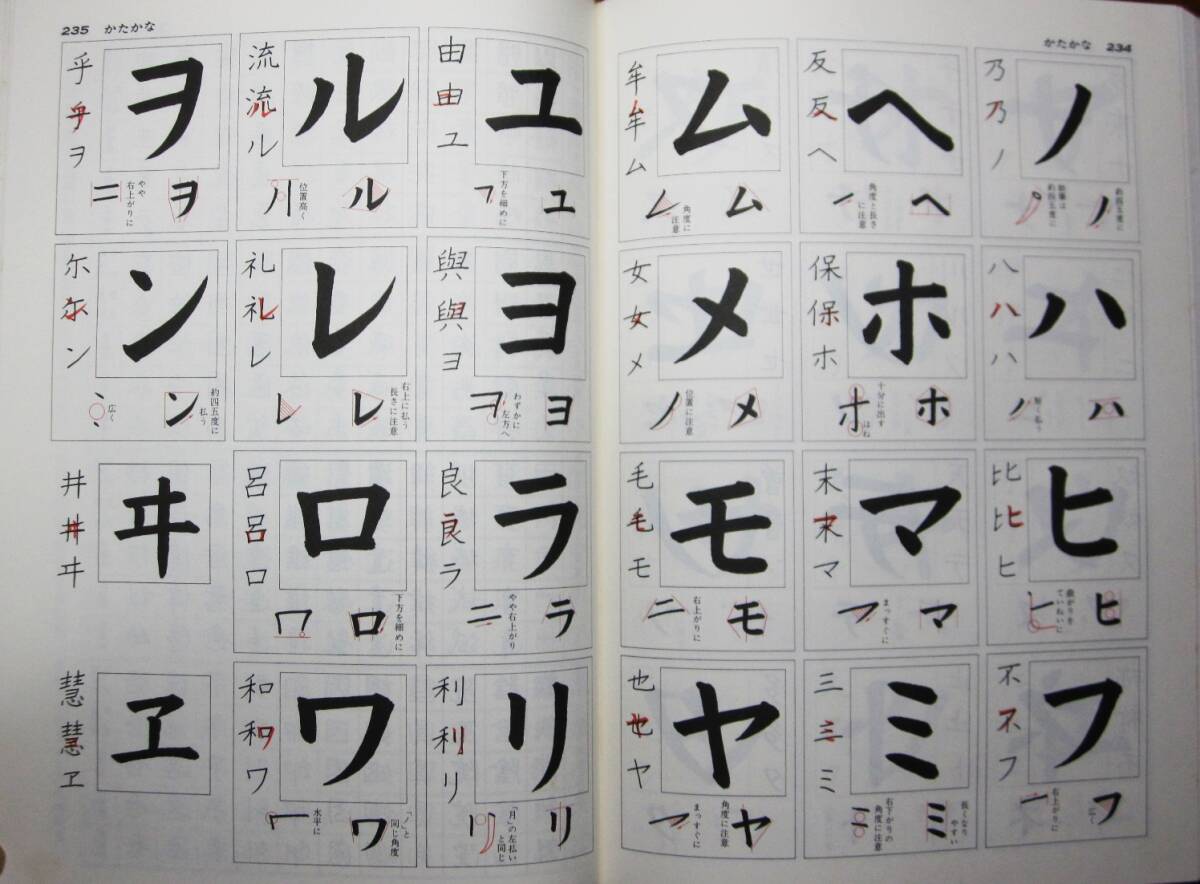 かたかな 234
ノ
乃
乃
ノ
約四五度に
ノ
ハ
八
八
ハ
ハ
短く払う
ノ
ヒ
比
比
ヒ
ヒ
曲がりを
ていねいに
フ
不
不
フ
フ
広く
右上がりに
ヘ
反
反
ヘ
ヘ
角度と長さ
に注意
ホ
保
保
ホ
ホ
十分に出す
はね
マ
末
末
マ
マ
まっすぐに
ミ
三
三
ミ
ミ
長くなり
やすい
右下がりの
角度に注意
ム
牟
牟
ム
ム
角度に
注意
メ
女
女
メ
メ
位置に注意
モ
毛
毛
モ
モ
右上がりに
ヤ
也
也
ヤ
ヤ
角度に注意
まっすぐに
235 かたかな
ユ
由
由
ユ
ユ
下方を細めに
ヨ
與
與
ヨ
ヨ
わずかに
左方へ
ラ
良
良
ラ
ラ
やや右上がり
リ
利
利
リ
リ
「月」の左払い
と同じ
ル
流
流
ル
ル
位置高く
レ
礼
礼
レ
レ
右上に払う
長さに注意
ロ
呂
呂
ロ
ロ
下方を細めに
ワ
和
和
ワ
ワ
「ノ」と
同じ角度
水平に
ヲ
乎
乎
ヲ
ヲ
やや
右上がりに
ン
尓
尓
ン
ン
約四五度に
払う
広く
ヰ
井
井
ヰ
ヱ
慧
慧
ヱ